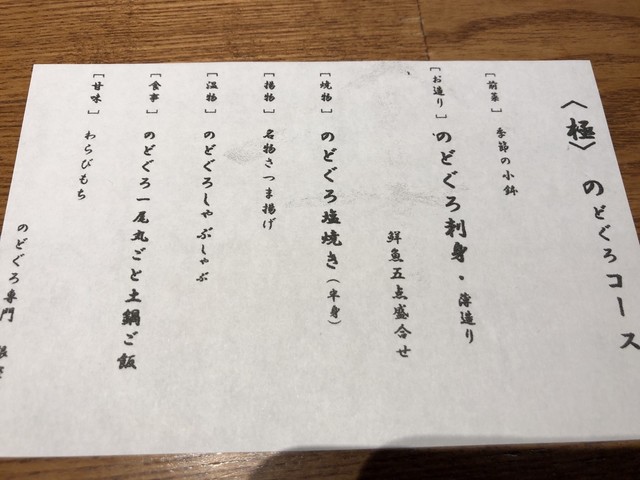 〈極〉 のどぐろコース
[前菜] 季節の小鉢
[お造り] のどぐろ刺身・薄造り
鮮魚五点盛合せ
[焼物] のどぐろ塩焼き(半身)
[揚物] 名物さつま揚げ
[温物] のどぐろしゃぶしゃぶ
[食事] のどぐろ一尾丸ごと土鍋ご飯
[甘味] わらびもち
のどぐろ専門